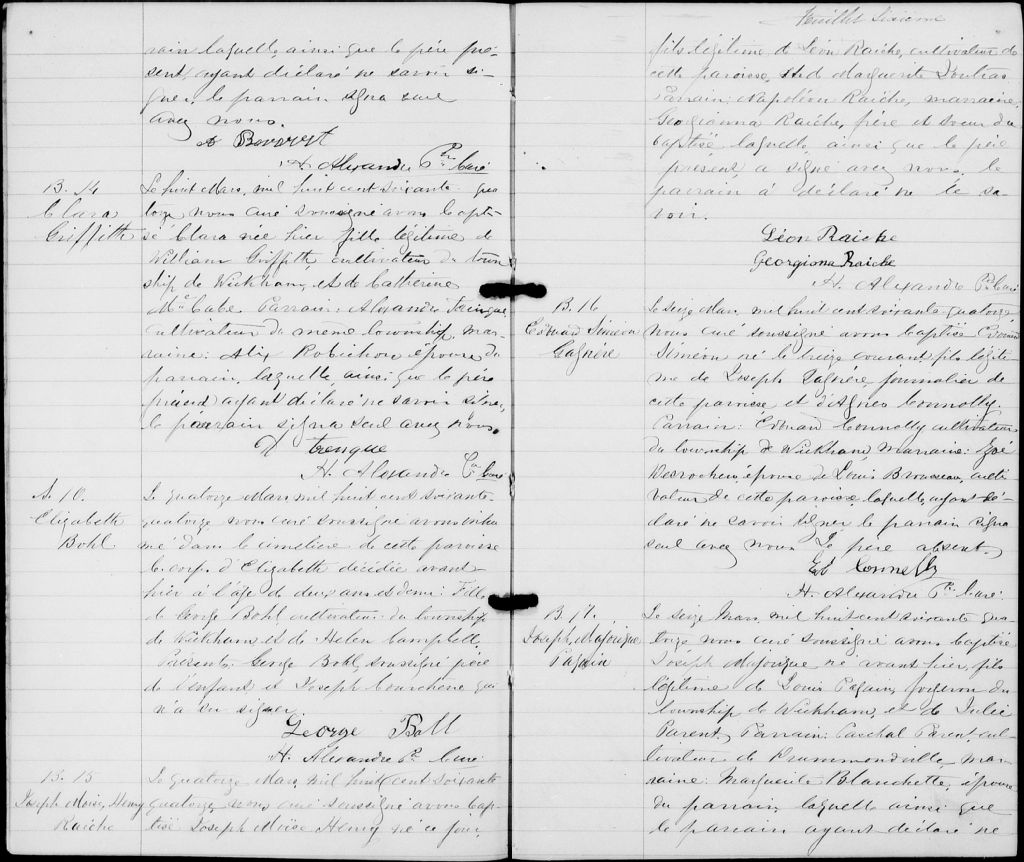 raine laquelle, ainsi que le père pré-
sent, ayant déclaré ne savoir si-
gner, le parrain signa seul
avec nous.
H. Alexandre Ptre Curé
B. 14
Clara
Griffith
Le huit Mars, mil huit cent soixante-qua-
torze nous curé soussigné avons bapti-
sé Clara née hier fille légitime de
William Griffith, cultivateur du town
ship de Wickham, et de Catherine
McCabe Parrain: Alexandre Trenque,
cultivateur du même township, mar-
raine: Alix Robichon épouse du
parrain, laquelle, ainsi que le père
présent ayant déclaré ne savoir signer,
le parrain signa seul avec nous.
trenque
H. Alexandre Ptre Curé
S. 10.
Elizabeth
Bohl
Le quatorze Mars mil huit cent soixante
quatorze nous curé soussigné avons inhu
mé dans le cimetière de cette paroisse
le corps d'Elizabeth décédée avant-
hier à l'âge de deux ans et demi. Fille
de George Bohl cultivateur du township
de Wickham et de Helen Campbell.
Présents: George Bohl, soussigné père
de l'enfant et Joseph Courchène qui
n'a su signer.
George Ball
H. Alexandre Ptre Curé
B. 15
Joseph Moise, Henry
Raiche
Le quatorze Mars, mil huit cent soixante
quatorze nous curé soussigné avons bap-
tisé Joseph Moïse Henry né ce jour,
Feuillet Sixième
fils légitime de Léon Raiche, cultivateur de
cette paroisse, et de Marguerite
Parrain: Napoléon Raiche, marraine:
Georgianna Raiche, frère et soeur du
baptisé laquelle, ainsi que le père
présent, a signé avec nous, le
parrain a déclaré ne le sa-
voir.
Léon Raiche
Georgiana Raiche
H. Alexandre Ptre Curé
B. 16
Edouard Siméon
Lagnère
Le seize Mars, mil huit cent soixante quatorze
nous curé soussigné avons baptisé Edouard
Siméon né le treize courant, fils légiti-
me de Joseph journalier de
cette paroisse et d'Agnes Connolly.
Parrain: Edouard Connolly cultivateur
du township de Wickham, marraine: Zoé
Desrochers épouse de Louis Brousseau, culti-
vateur de cette paroisse laquelle, ayant dé-
claré ne savoir signer le parrain signa
seul avec nous Le père absent.
Ed Connelly
H. Alexandre Ptre Curé
B. 17.
Joseph Majorique
Pagain
Le seize Mars, mil huit cent soixante qua-
torze nous curé soussigné avons baptisé
Joseph Majorique né avant hier, fils
légitime de Louis forgeron du
township de Wickham, et de Julie
Parent, Parrain: Paschal Parent, cul-
tivateur de Drummondville, mar-
raine: Marguerite Blanchette, épouse
du parrain, laquelle ainsi que
le parrain ayant déclaré ne